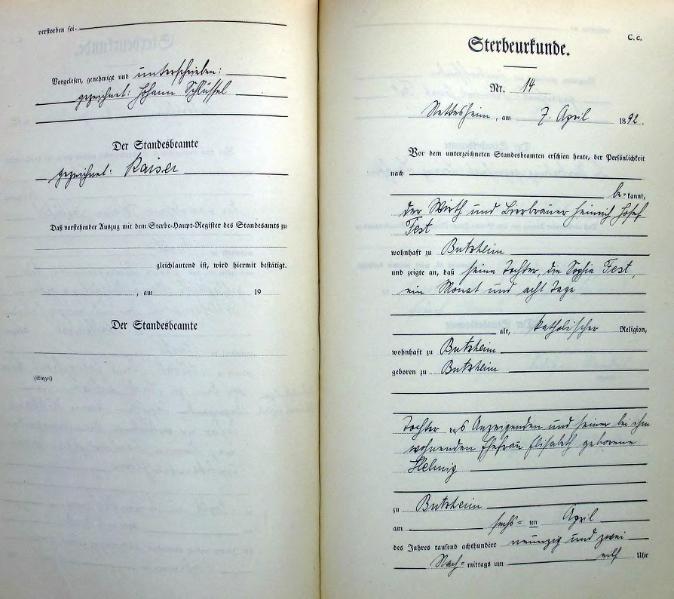 verstorben sei
Vorgelesen, genehmigt und unterschrieben:
gezeichnet: Johann Schlüssel
Der Standesbeamte
gezeichnet: Kaiser
Daß vorstehender Auszug mit dem Sterbe-Haupt-Register des Standesamts zu
gleichlautend ist, wird hiermit bestätigt.
, am 19
Der Standesbeamte
(Siegel)
C. c.
Sterbeurkunde.
Nr. 14
Nettesheim, am 7. April 1892.
Vor dem unterzeichneten Standesbeamten erschien heute, der Persönlichkeit
nach
be-kannt,
der Wirth und Bierbrauer Heinrich Josef
Fest
wohnhaft zu Butzheim
und zeigte an, daß seine Tochter, die Sophia Fest,
ein Monat und acht Tage
alt, katholischer Religion,
wohnhaft zu Butzheim
geboren zu Butzheim
Tochter des Anzeigenden und seiner bei ihm
wohnenden Ehefrau Elisabeth geborene
zu Butzheim
am sechs-ten April
des Jahres tausend achthundert neunzig und zwei
Nach-mittags um elf Uhr